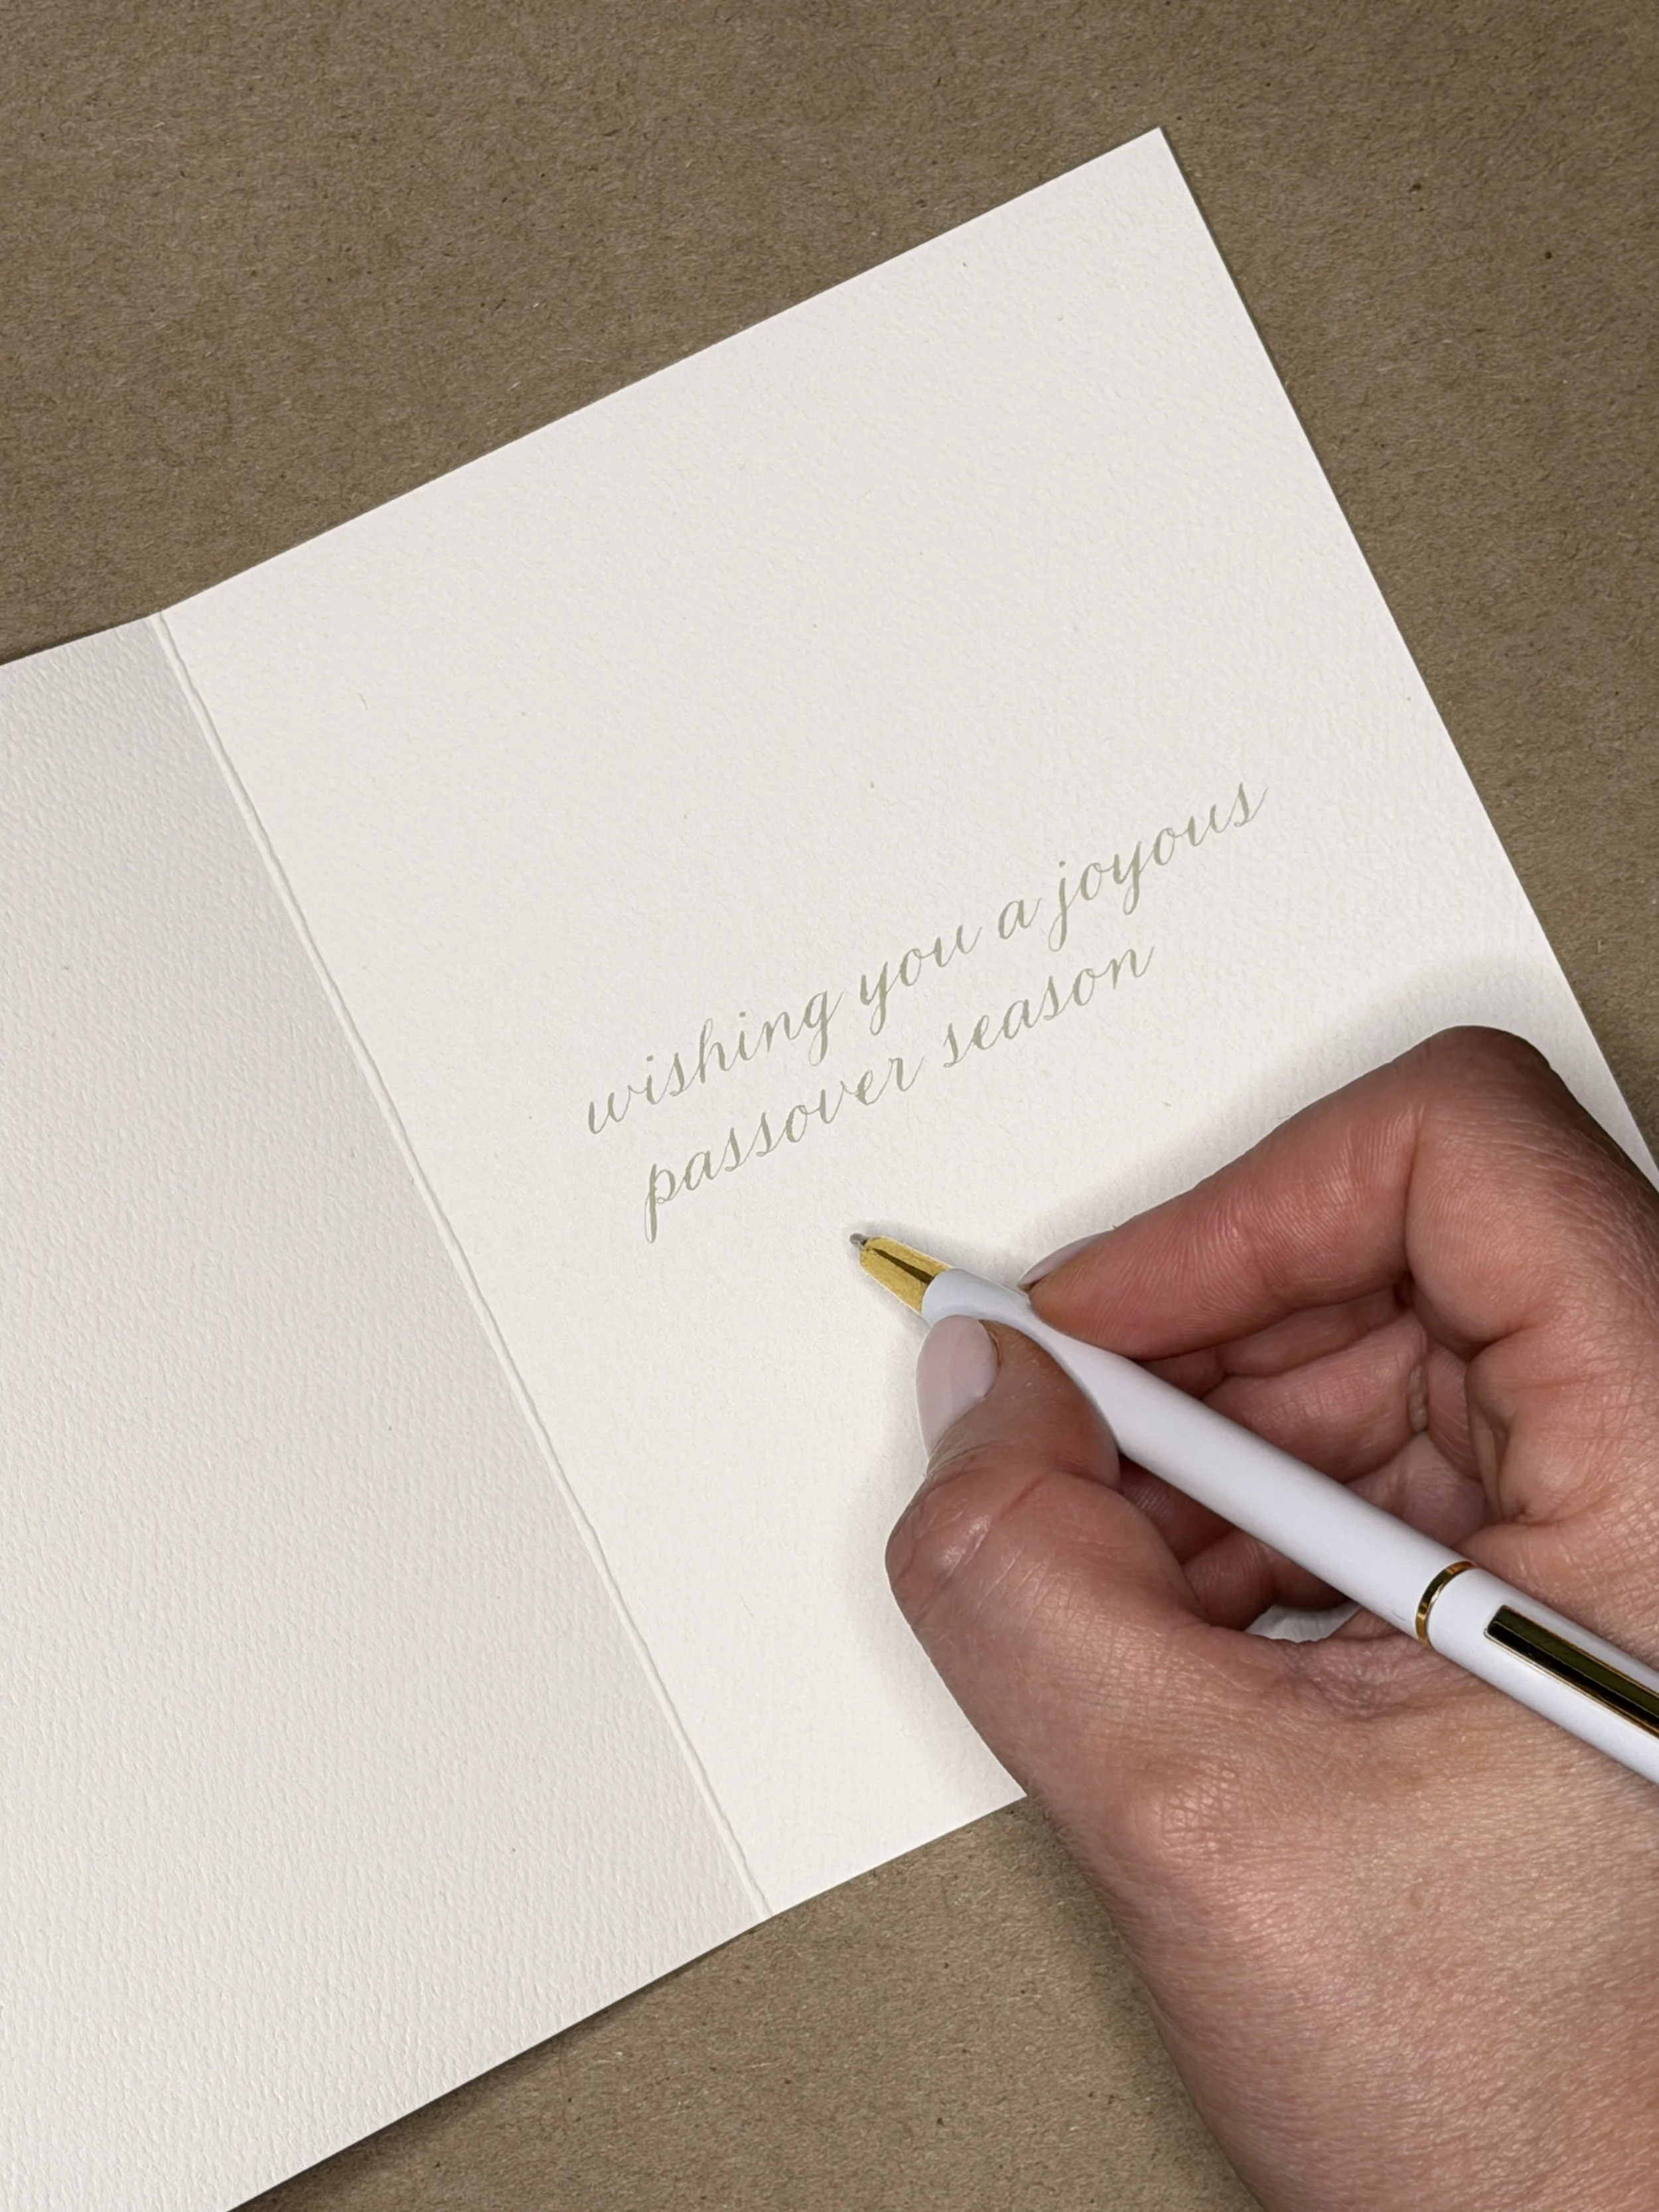 wishing you a joyous
passover season